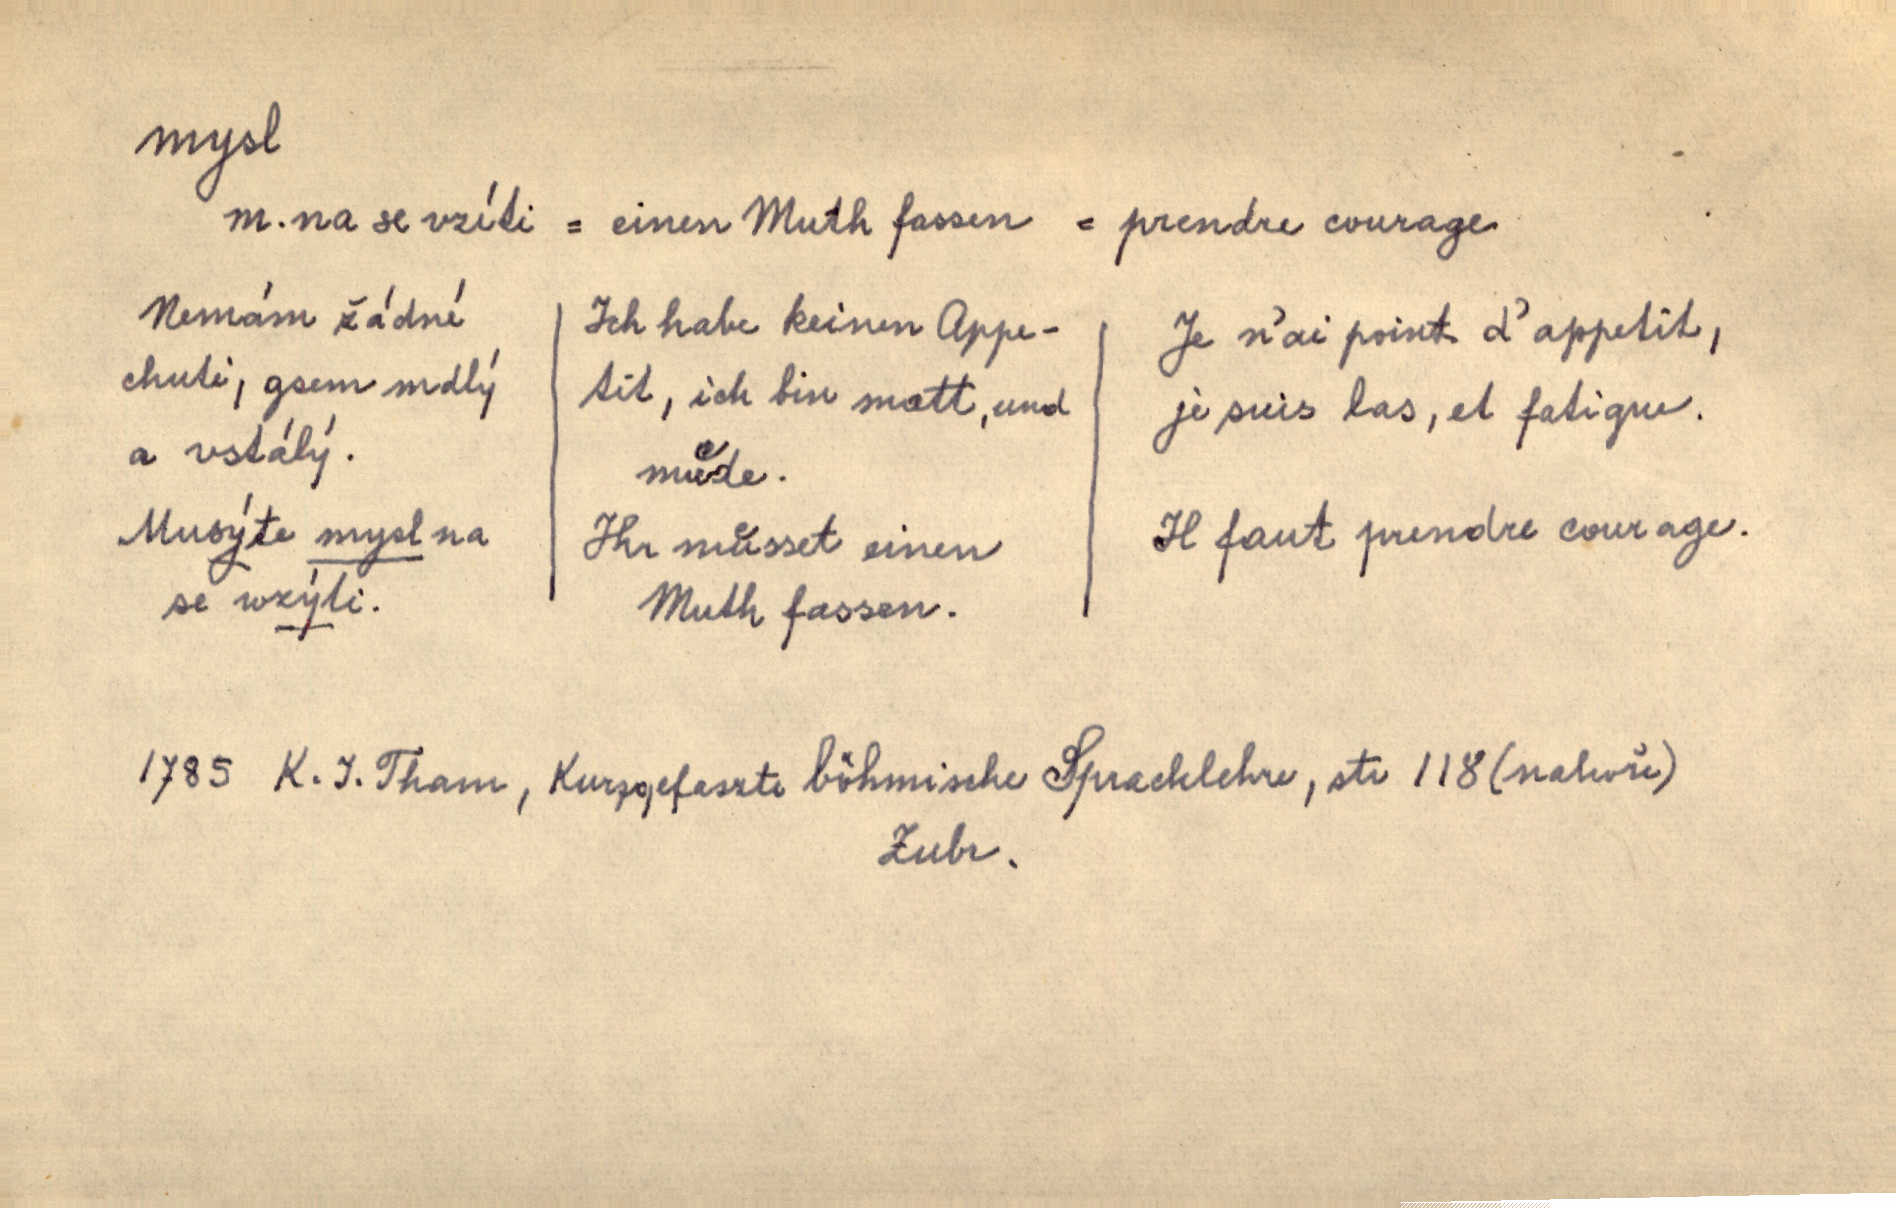 mysl
m. na se vzíti = einen Muth fassen = prendre courage
Nemám žádné
chuti, gsem mdlý
a vstálý.
Musýte mysl na
se wzýti.
Ich habe keinen Appe-
tit, ich bin matt, und
muͤde.
Ihr muͤsset einen
Muth fassen.
Je n'ai point d'appetit,
je suis las, et fatigue.
Il faut prendre courage.
1785 K. I. Tham, Kurzgefaszte böhmische Sprachlehre, str 118 (nahoře)
Zubr.